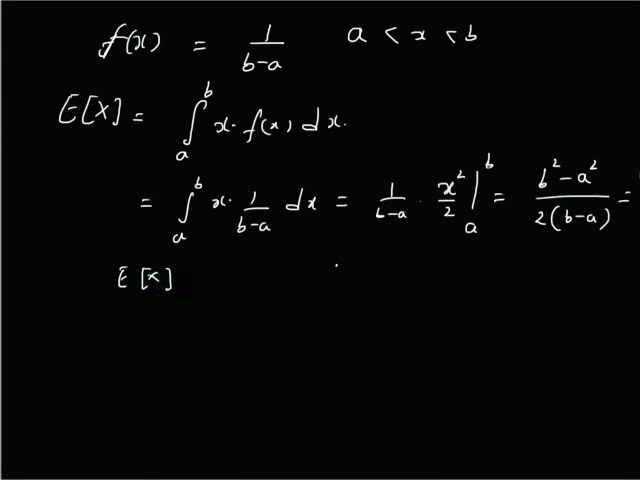 f(x) = 1/(b-a) a < x < b
E[X] = ∫_a^b x. f(x) dx.
= ∫_a^b x. 1/(b-a) dx = 1/(b-a) . x²/2 |_a^b = (b²-a²)/(2(b-a)) =
E[x]